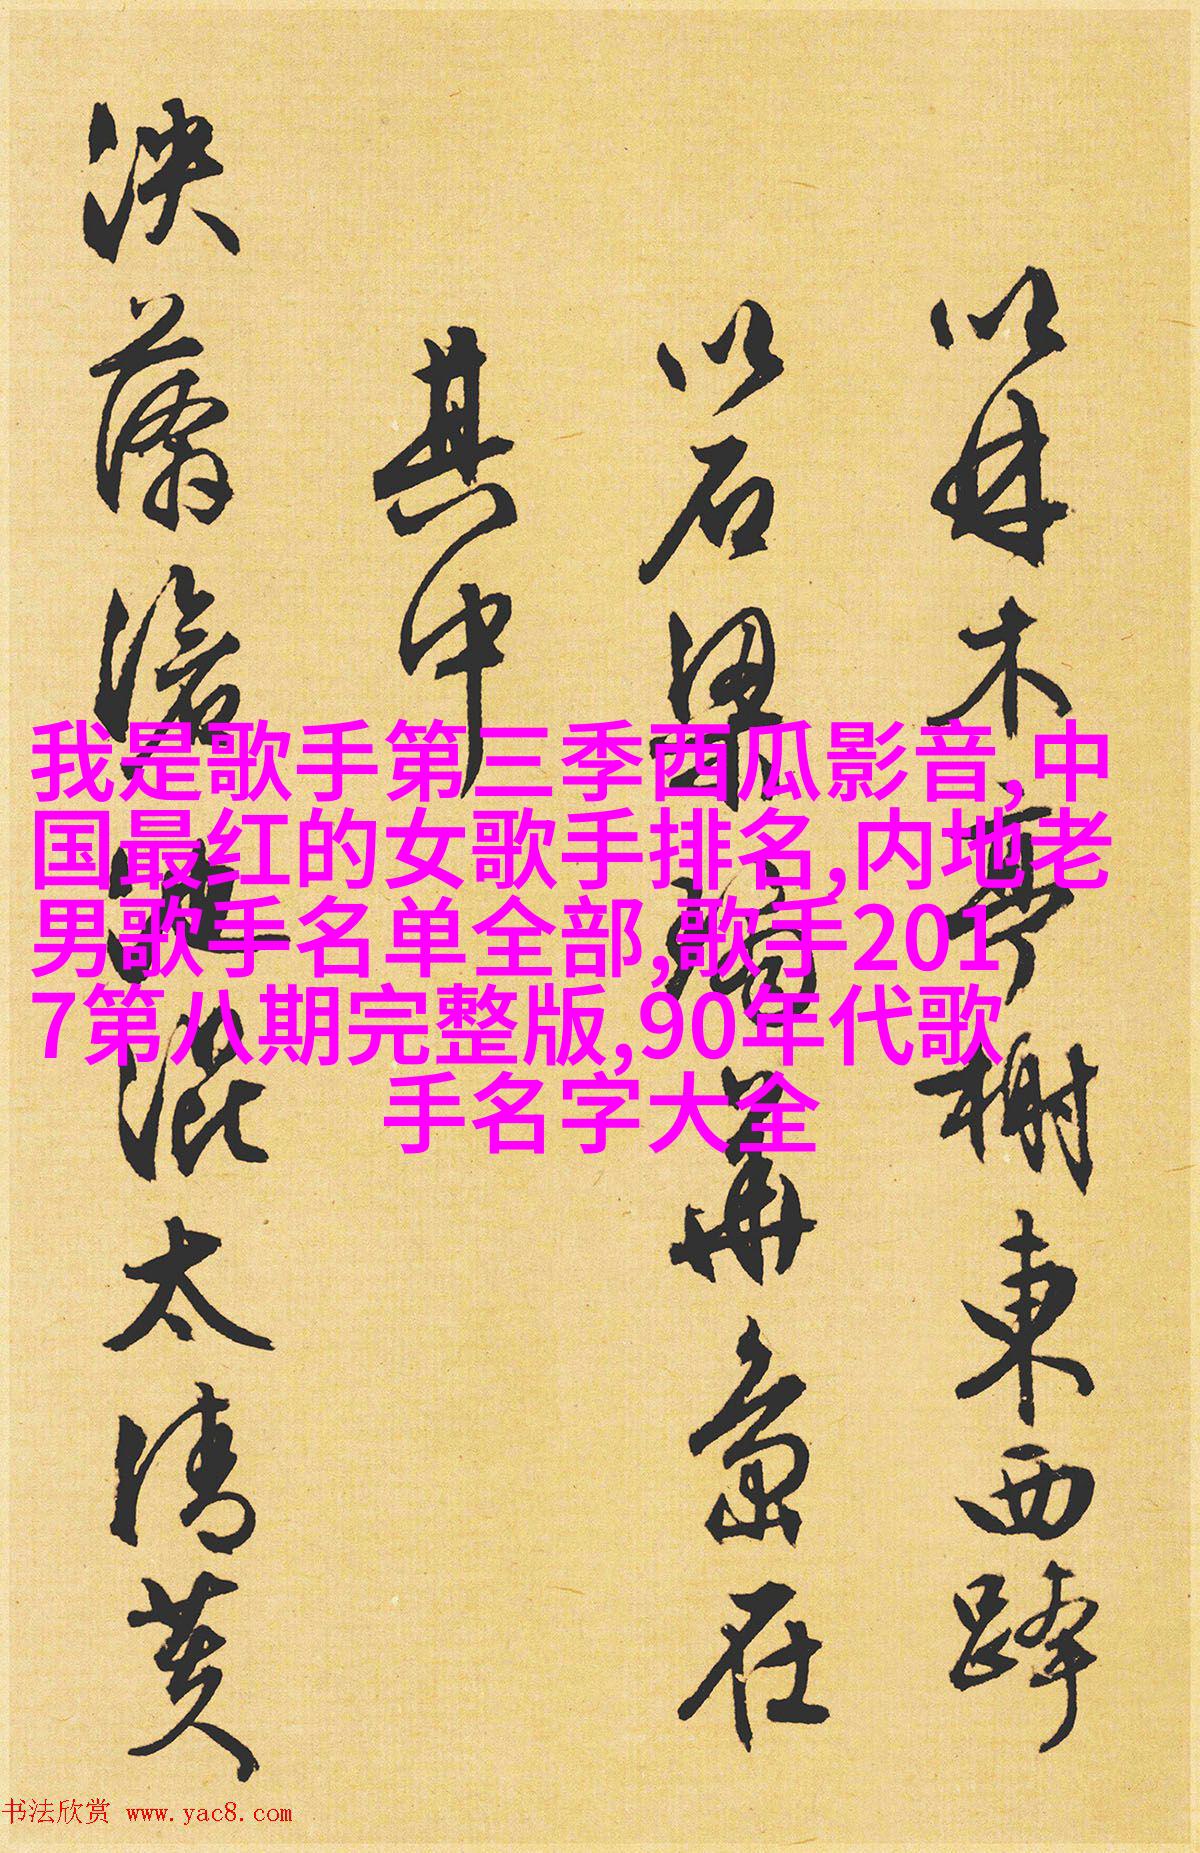 以林木亭榭東西跨
以石梁瓊華島在
其中
泱漭滄池混太清芙
我是歌手第三季西瓜影音,中
国最红的女歌手排名,内地老
男歌手名单全部,歌手201
7第八期完整版,90年代歌
手名字大全
书法欣赏 www.yac8.com